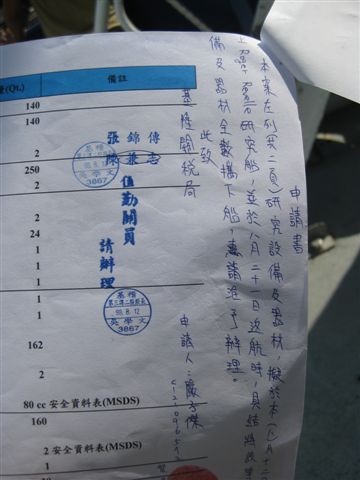 申請書
本案左列共二頁研究設備及器材,擬於本(八)月十二
研究船,並於八月二十一日返航時,具結將
備及器材全數攜下船,惠請准予辦理。
此致
基隆關稅局
申請人:
(Qt.) 備註
140
140
2
250
2
24
1
1
1
1
162
2
80 cc 安全資料表(MSDS)
160
2 安全資料表(MSDS)
1
張錦傳
陳兼志
值勤關員
請辦理
基稽
3867
基稽
98.8.12
吳學文
3867